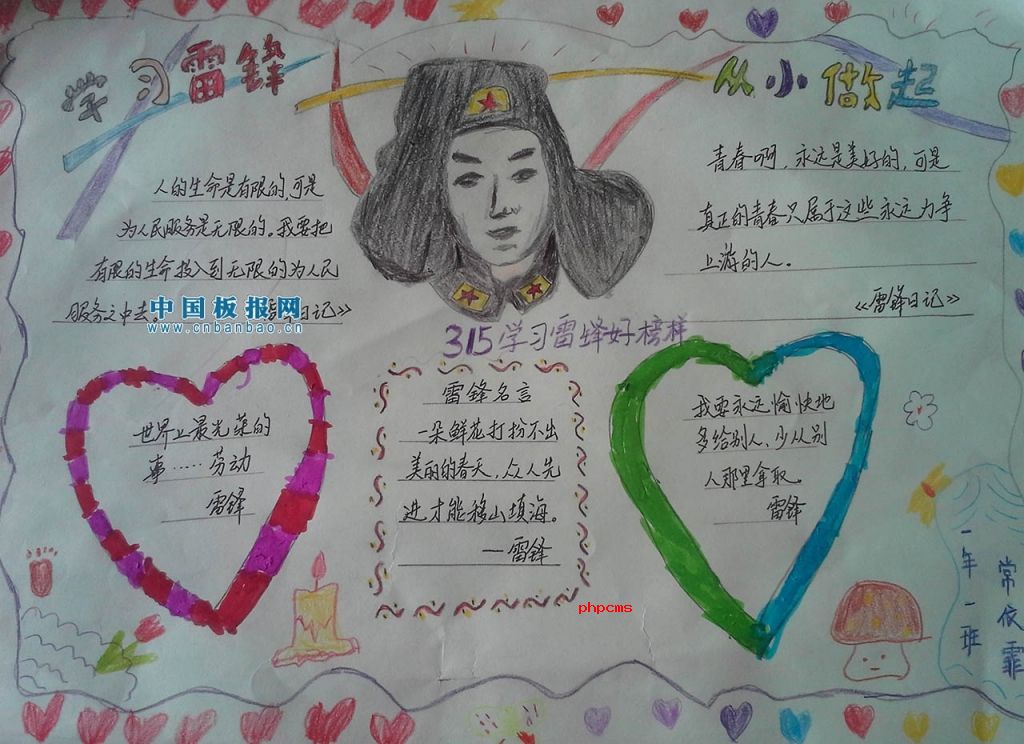 学习雷锋
从小做起
人的生命是有限的,可是
为人民服务是无限的。我要把
有限的生命投入到无限的为人民
服务之中去。
日记》
中国板报网
www.cnbanbao.cn
青春啊,永远是美好的,可是
真正的青春只属于这些永远力争
上游的人。
《雷锋日记》
315学习雷锋好榜样
世界上最光荣的
事……劳动
雷锋
雷锋名言
一朵鲜花打扮不出
美丽的春天,众人先
进才能移山填海。
—雷锋
我要永远愉快地
多给别人,少从别
人那里拿取。
雷锋
phpcms
一年一班
常依霏